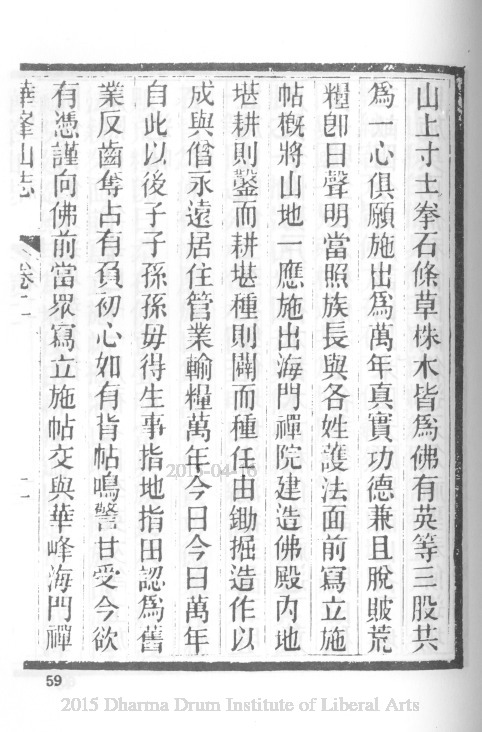 山上寸土拳石條草株木皆爲佛有英等三股共
爲一心俱願施出爲萬年真實功德兼且脫賠荒
糧卽日聲明當照族長與各姓護法面前寫立施
帖概將山地一應施出海門禪院建造佛殿內地
堪耕則鑿而耕堪種則闢而種任由鋤掘造作以
成與僧永遠居住管業輸糧萬年今日今日萬年
自此以後子子孫孫毋得生事指地指田認爲舊
業反齒奪占有負初心如有背帖鳴警甘受今欲
有憑謹向佛前當眾寫立施帖交與華峰海門禪
華峯山志 卷二 二
59
2015-04-16
2015 Dharma Drum Institute of Liberal Arts